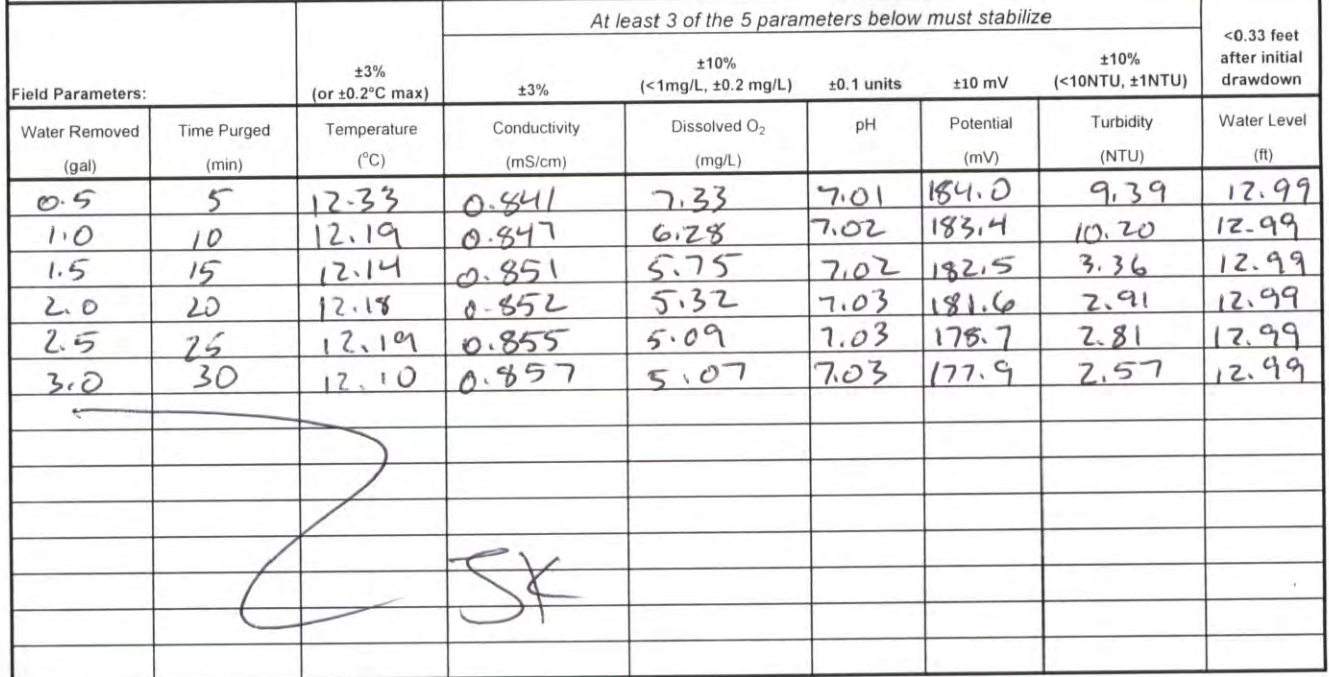 At least 3 of the 5 parameters below must stabilize
Field Parameters: ±3% (or ±0.2°C max) ±3% ±10% (<1mg/L, ±0.2 mg/L) ±0.1 units ±10 mV ±10% (<10NTU, ±1NTU) <0.33 feet after initial drawdown
Water Removed (gal) Time Purged (min) Temperature (°C) Conductivity (mS/cm) Dissolved O₂ (mg/L) pH Potential (mV) Turbidity (NTU) Water Level (ft)
0.5 5 12.33 0.841 7.33 7.01 184.0 9.39 12.99
1.0 10 12.19 0.847 6.28 7.02 183.4 10.20 12.99
1.5 15 12.14 0.851 5.75 7.02 182.5 3.36 12.99
2.0 20 12.18 0.852 5.32 7.03 181.6 2.91 12.99
2.5 25 12.19 0.855 5.09 7.03 178.7 2.81 12.99
3.0 30 12.10 0.857 5.07 7.03 177.9 2.57 12.99
SK